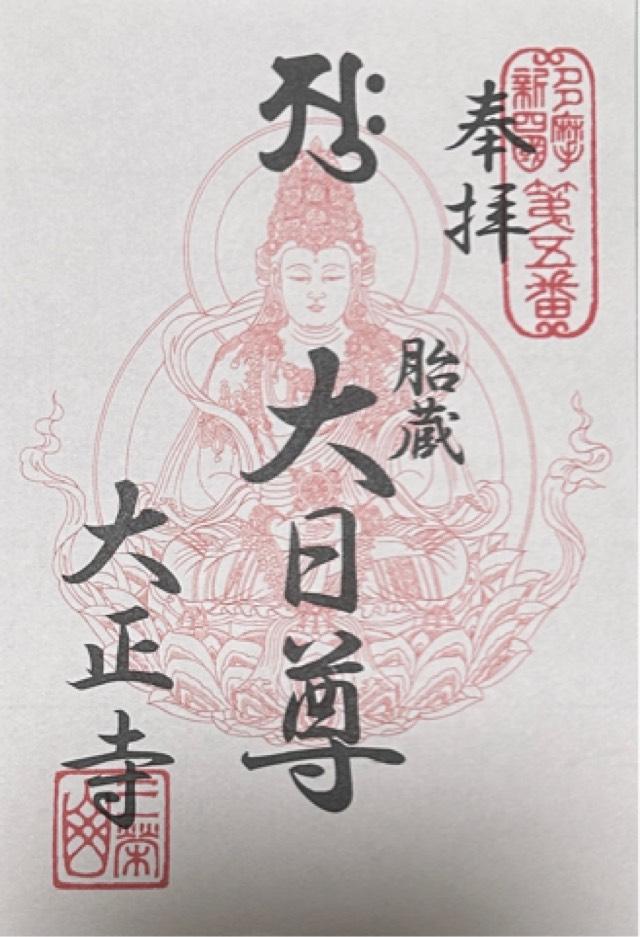 多摩
新四國
第五番
奉拝
胎蔵
大日尊
大正寺